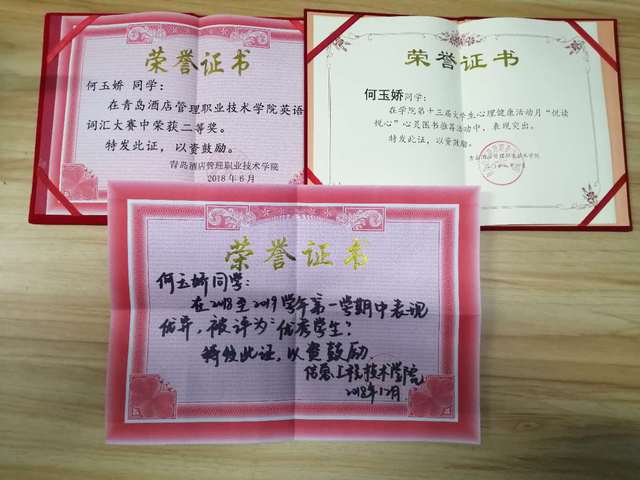 荣誉证书
何玉娇 同学：
在青岛酒店管理职业技术学院英语
词汇大赛中荣获二等奖。
特发此证，以资鼓励。
青岛酒店管理职业技术学院
2018年6月
荣誉证书
何玉娇同学：
在学院第十三届大学生心理健康活动月“悦读
悦心”心灵图书推荐活动中，表现突出。
特发此证，以资鼓励。
青岛酒店管理职业技术学院
荣誉证书
何玉娇同学：
在2018至2019学年第一学期中表现
优异，被评为“优秀学生”
特发此证，以资鼓励。
信息工程技术学院
2018年12月